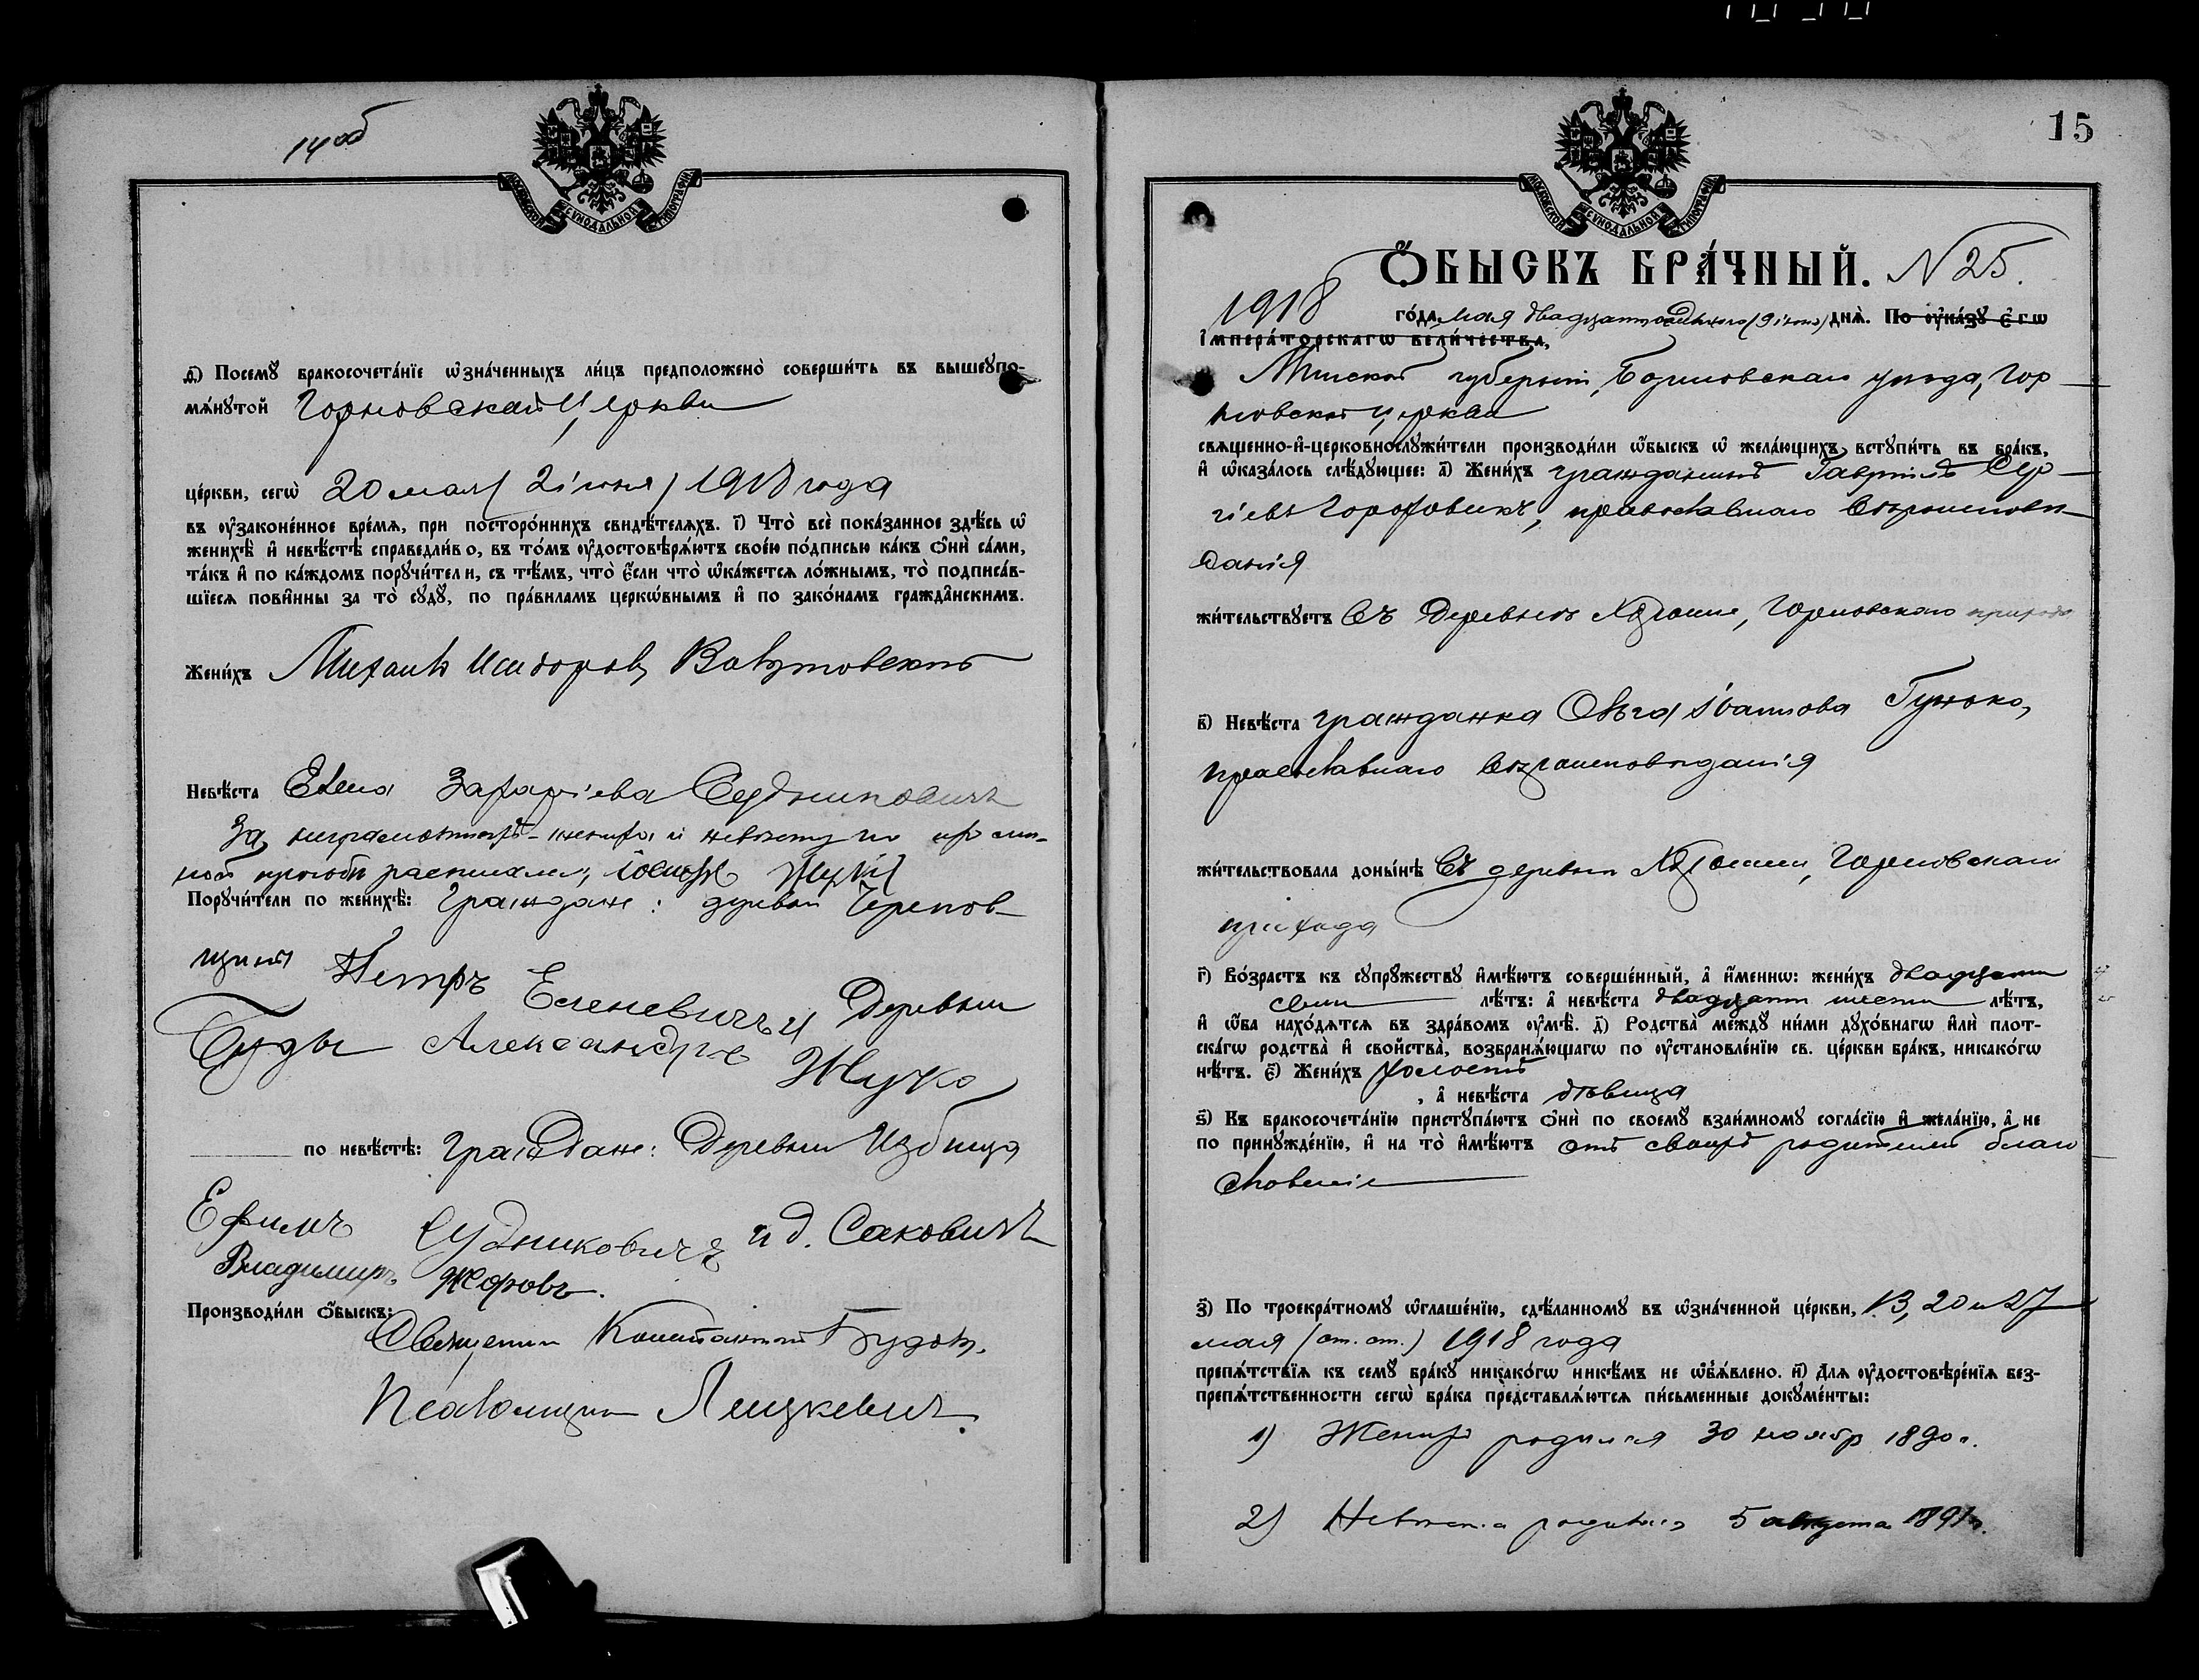 14об
МОСКОВСКОЙ СѴНОДАЛЬНОЙ ТИПОГРАФІИ
д҃) Посемꙋ бракосочета́нїе ѡ҆зна́ченныхъ ли́цъ предположено̀ соверши́ть въ вышеꙋпо-
мѧ́нꙋтой Горновской Церкви
це́ркви, сегѡ̀ 20 мая (2 іюня) 1918 года
въ ᲂу҆законе́нное вре́мѧ, при посторо́ннихъ свидѣ́телѧхъ. і҃) Что̀ всѐ пока́занное здѣ́сь ѡ҆
женихѣ̀ и҆ невѣ́стѣ справедли́во, въ то́мъ ᲂу҆достовѣрѧ́ютъ свое́ю по́дписью ка́къ ѻ҆нѝ са́ми,
та́къ и҆ по ка́ждомъ порꙋчи́тели, съ тѣ́мъ, что̀ є҆́сли что̀ ѡ҆ка́жетсѧ ло́жнымъ, то̀ подписа́в-
шїесѧ пови́нны за то̀ сꙋдꙋ̀, по пра́виламъ церкѡ́внымъ и҆ по зако́намъ гражда̂нскимъ.
Жени́хъ Михаилъ Исидоровъ
Невѣ́ста Елена Захаріева Судниковичъ
За неграмотныхъ жениха и невѣсту по ихъ лич-
ной просьбѣ расписался Іосифъ
Порꙋчи́тели по женихѣ̀: Граждане: деревни Черенов-
щины Петръ Есеневичъ и Деревни
Буды Александръ Жучко
по невѣ́стѣ: Граждане: Деревни Избища
Ефимъ Судниковичъ и д. Саковичъ
Владимиръ Жоровъ.
Производи́ли ѻ҆́быскъ:
Священникъ Константинъ
Псаломщикъ Лецкевичъ.
15
МОСКОВСКОЙ СѴНОДАЛЬНОЙ ТИПОГРАФІИ
Ѻ҆́БЫСКЪ БРА́ЧНЫЙ. N 25.
1918 го́да мая двадцать (9 іюня) днѧ̀. По ᲂу҆ка́зꙋ є҆гѡ̀
і҆мпера́торскагѡ вели́чества,
Минской губерніи, Борисовскаго уѣзда, Гор-
новской церкви
свѧщенно-и҆-церковнослꙋжи́тели производи́ли ѡ҆́быскъ ѡ҆ жела́ющихъ встꙋпи́ть въ бра́къ,
и҆ ѡ҆каза́лось слѣ́дꙋющее: а҃) Жени́хъ гражданинъ Гавріилъ Сер-
гіевъ Горофовикъ, православнаго вѣроисповѣ-
данія
жи́тельствꙋетъ въ деревнѣ, Горновскаго прихода
в҃) Невѣ́ста гражданка Ольга Іванова Гунько,
православнаго вѣроисповѣданія
жи́тельствовала доны́нѣ въ деревнѣ, Горновскаго
прихода
г҃) Во́зрастъ къ сꙋпрꙋ́жествꙋ и҆мѣ́ютъ соверше́нный, а҆ и҆́меннѡ: жени́хъ двадцати
семи лѣ́тъ: а҆ невѣ́ста двадцати шести лѣ́тъ,
и҆ ѡ҆́ба нахо́дѧтсѧ въ здра́вомъ ᲂу҆мѣ̀. д҃) Родства̀ ме́ждꙋ ни́ми дꙋхо́внагѡ и҆лѝ плот-
ска́гѡ родства̀ и҆ сво́йства̀, возбранѧ́ющагѡ по ᲂу҆становле́нїю св. це́ркви бра́къ, никако́гѡ
нѣ́тъ. є҃) Жени́хъ холостъ
, а҆ невѣ́ста дѣвица
ѕ҃) Къ бракосочета́нїю пристꙋпа́ютъ ѻ҆нѝ по своемꙋ̀ взаи́мномꙋ согла́сїю и҆ жела́нїю, а҆ не
по принꙋжде́нїю, и҆ на то̀ и҆мѣ́ютъ отъ своихъ родителей благо
словеніе
з҃) По троекра́тномꙋ ѡ҆глаше́нїю, сдѣ́ланномꙋ въ ѡ҆зна́ченной це́ркви, 13, 20 и 27
мая (ст. ст.) 1918 года
препѧ́тствїѧ къ семꙋ̀ бра́кꙋ никако́гѡ никѣ́мъ не ѡ҆б̾ѧ́влено. и҃) Для ᲂу҆достовѣре́нїѧ без-
препѧ́тственности сегѡ̀ бра́ка представлѧ́ютсѧ пи́сьменные докꙋме́нты:
1) Женихъ родился 30 ноябр 1890 г.
2) Невѣста родилась 5 августа 1891 г.